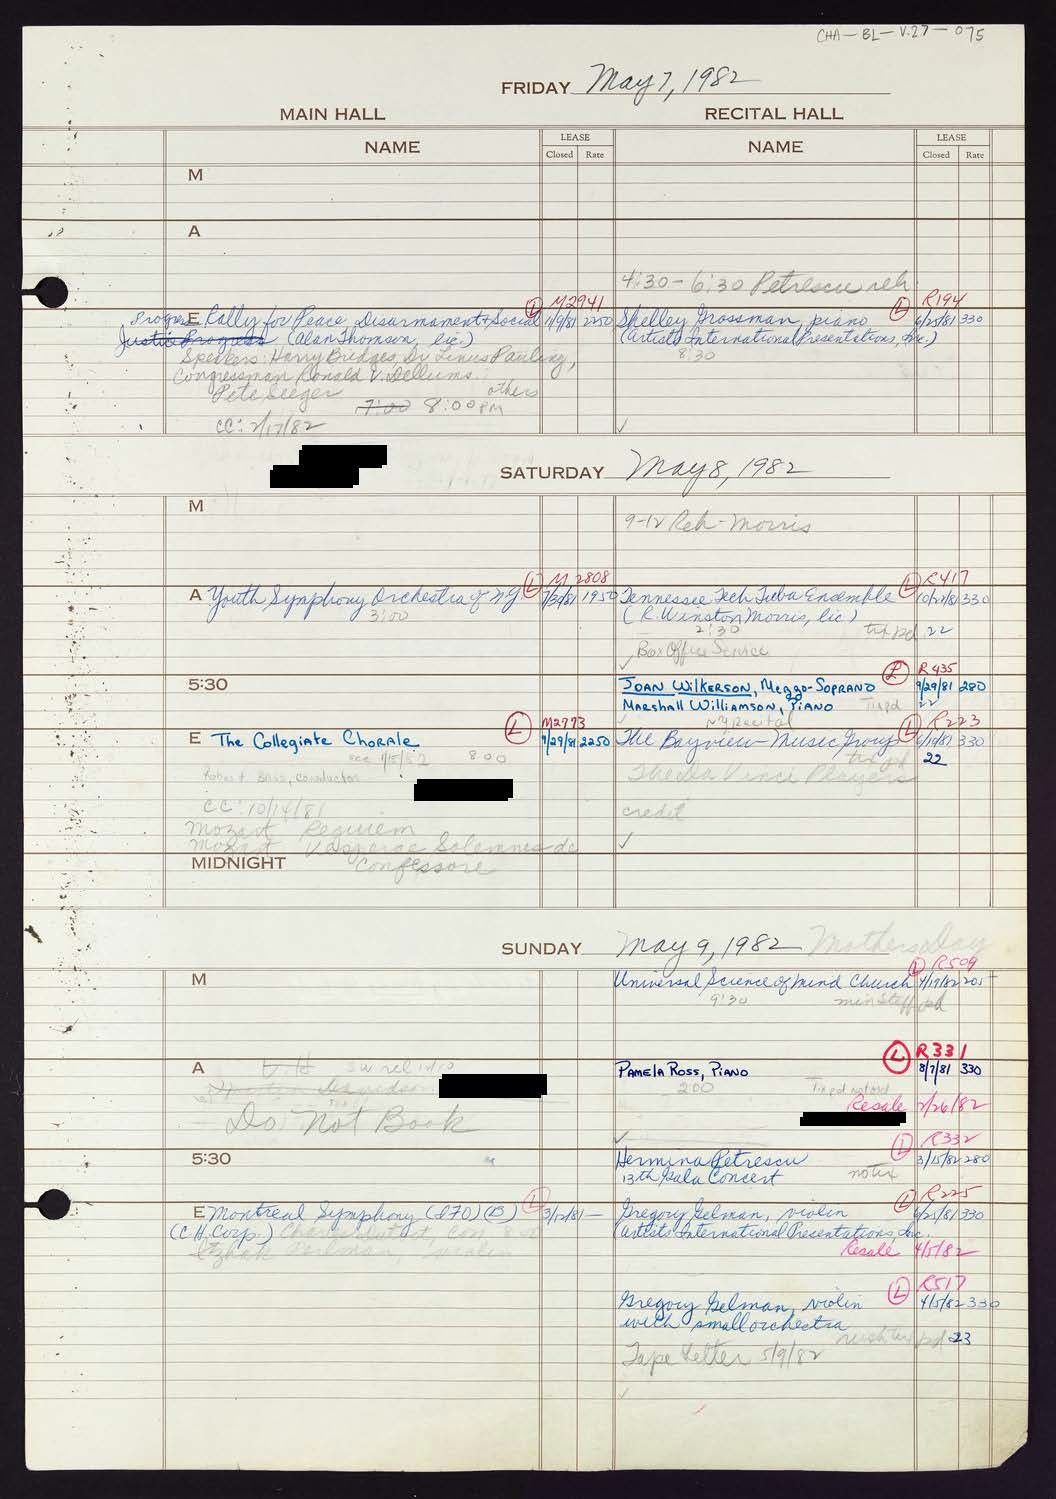 CHA-BL-V.27-075
FRIDAY May 7, 1982
MAIN HALL
RECITAL HALL
NAME
LEASE
Closed Rate
NAME
LEASE
Closed Rate
M
A
4:30-6:30 Petrescu reh
L M2941
E Rally for Peace, Disarmament & Social 1/9/81 2250
Justice Progress (Alan Thomson, lic.)
Spekers: Harry Bridges, Dr Linus Pauling,
Congressman Ronald V. Dellums
Pete Seeger others
7:00 8:00 PM
CC: 2/17/82
L R194
Shelley Grossman, piano 6/25/81 330
(Artists International Presentations, Inc.)
8:30
SATURDAY May 8, 1982
M
9-12 Reh-Morris
L M 2808
A Youth Symphony Orchestra of NY 1950
3:00
L R417
Tennessee Tech Tuba Ensemble 10/21/81 330
(R. Winston Morris, lic)
2:30
tix pd 22
Box Office Service
5:30
L R435
Joan Wilkerson, Mezzo-Soprano 9/29/81 280
Marshall Williamson, Piano Tix pd 22
NY recital
L M2773
E The Collegiate Chorale 9/29/81 2250
8:00
Robert Bass, conductor
CC: 10/14/81
Mozart Requiem
Mozart Vesperae Solennes de
Confessore
L R223
The Bayview Music Group 330
tix pd 22
The Da Vinci Players
credit
MIDNIGHT
SUNDAY May 9, 1982 Mothers Day
M
L R509
Universal Science of Mind Church 4/19/82 205
9:30 min staff pd
A
Do Not Book
L R331
Pamela Ross, Piano 8/7/81 330
2:00 Tix pd not out
Resale 2/26/82
5:30
L R332
Hermina Petrescu 3/15/82 280
13th Gala Concert notix
L
E Montreal Symphony (IFO) (B) 3/12/81 —
(C.H. Corp.) Charles Dutoit, con. 8:00
Itzhak Perlman, violin
L R225
Gregory Gelman, violin 6/25/81 330
(Artists International Presentations, Inc.
Resale 4/5/82
L R517
Gregory Gelman, violin 4/5/82 330
with small orchestra
rush tix pd 23
Tape Letter 5/9/82